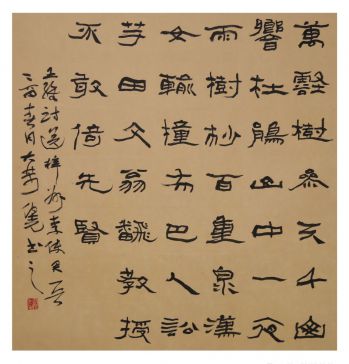 萬壑樹參天千
響杜鵑山中一夜
雨樹杪百重泉漢
女輸橦布巴人訟
芋田文翁翻教授
不敢倚先賢
王維詩送梓州李使君
春月 書之